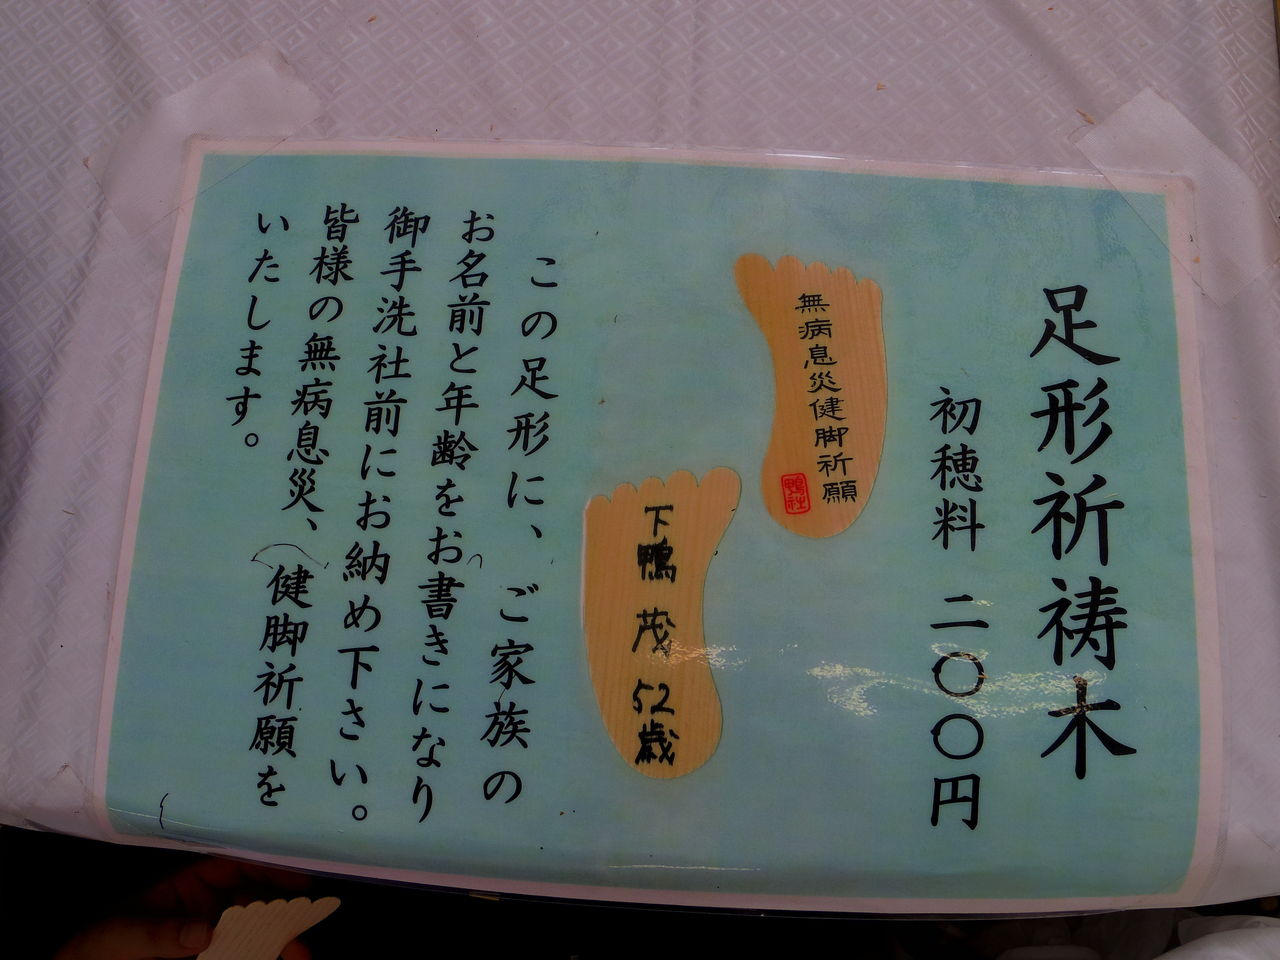 足形祈祷木
初穂料 二〇〇円
無病息災健脚祈願
鴨社
下鴨 茂 52歳
この足形に、ご家族の
お名前と年齢をお書きになり
御手洗社前にお納め下さい。
皆様の無病息災、健脚祈願を
いたします。